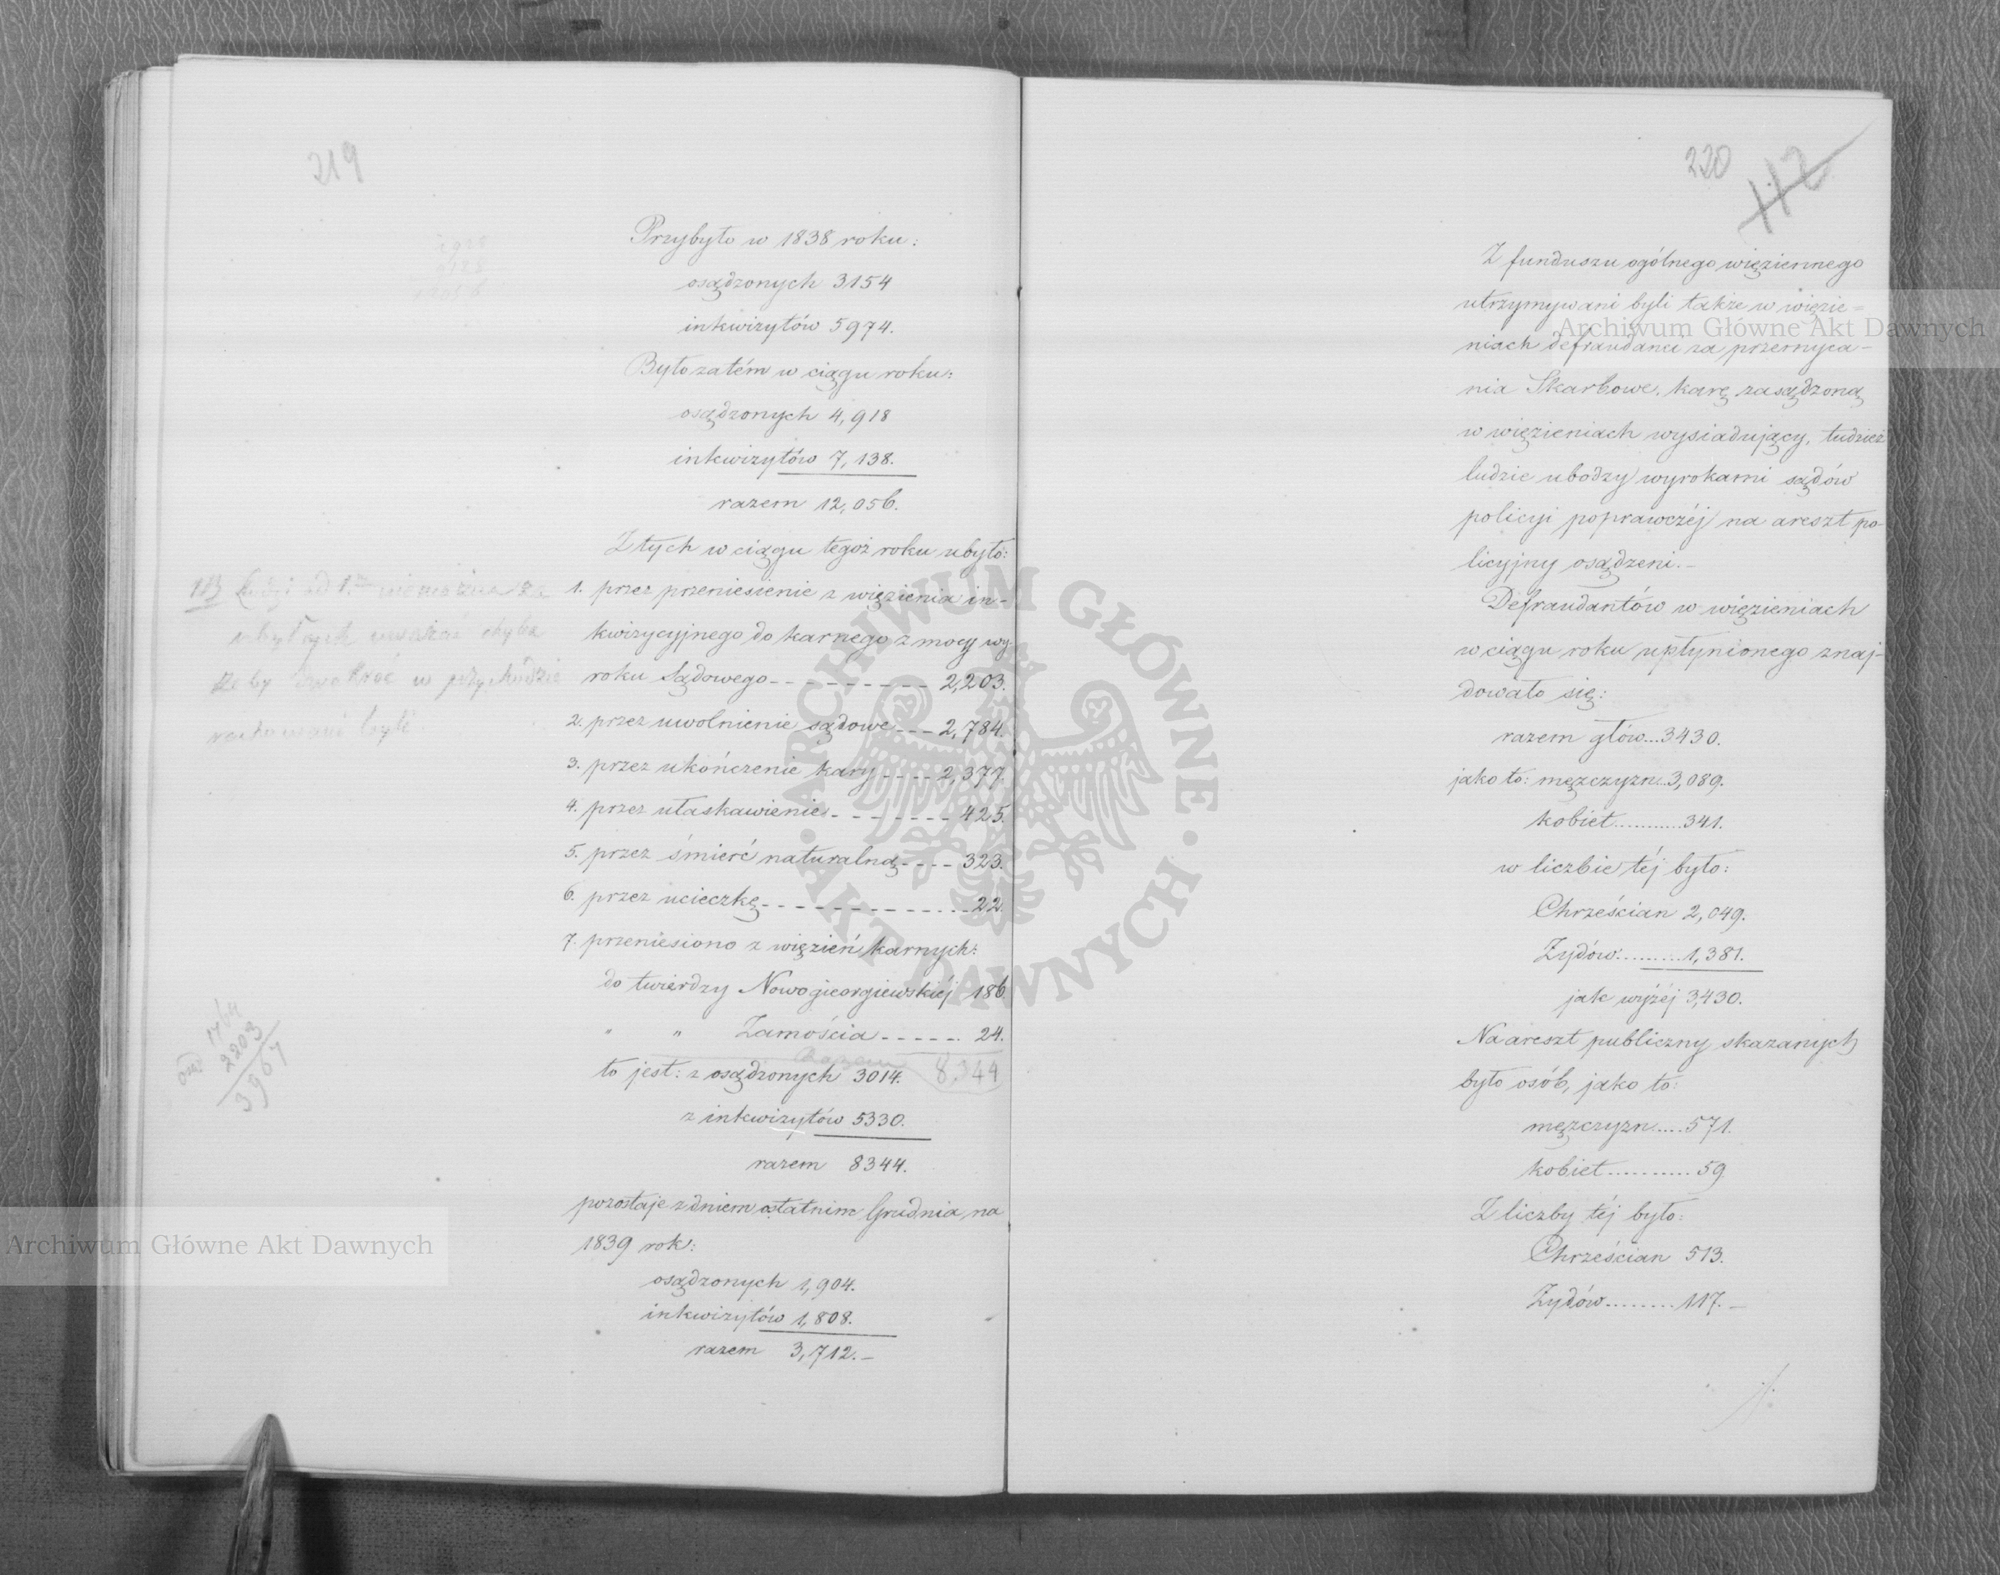 219
4918
7138
12056
Przybyło w 1838 roku:
osądzonych 3154
inkwizytów 5974.
Było zatém w ciągu roku:
osądzonych 4,918
inkwizytów 7,138.
razem 12,056.
Z tych w ciągu tegoż roku ubyło:
1. przez przeniesienie z więzienia in-
kwizycyjnego do karnego z mocy wy-
roku Sądowego --------- 2,203.
2. przez uwolnienie sądowe --- 2,784.
3. przez ukończenie kary ---- 2,377.
4. przez ułaskawienie -------- 425.
5. przez śmierć naturalną ---- 323.
6. przez ucieczkę ------------- 22.
7. przeniesiono z więzień karnych:
do twierdzy Nowogieorgiewskiéj 186.
" " Zamościa ------ 24.
Razem 8,344
to jest: z osądzonych 3014.
z inkwizytów 5330.
razem 8344.
pozostaje z dniem ostatnim Grudnia na
1839 rok:
osądzonych 1,904.
inkwizytów 1,808.
razem 3,712.-
NB Ludzi od 1. nie można za
ubyłych uważać chyba
żeby dwakroć w przychodzie
rachowani byli.
1764
2203
3967
220
112
Z funduszu ogólnego więziennego
utrzymywani byli także w więzie=
niach defraudanci za przemyca-
nia Skarbowe, karę zasądzoną
w więzieniach wysiadujący, tudzież
ludzie ubodzy wyrokami sądów
policyi poprawczéj na areszt po-
licyjny osądzeni.-
Defraudantów w więzieniach
w ciągu roku upłynionego znaj-
dowało się:
razem głów...3430.
jako to: mężczyzn...3,089.
kobiet...........341.
w liczbie téj było:
Chrześcian 2,049.
Żydów.........1,381.
jak wyżéj 3,430.
Na areszt publiczny skazanych
było osób, jako to:
mężczyzn.....571.
kobiet...........59
Z liczby téj było:
Chrześcian 513.
Żydów.........117.-
Archiwum Główne Akt Dawnych
Archiwum Główne Akt Dawnych
ARCHIWUM GŁÓWNE · AKT DAWNYCH ·